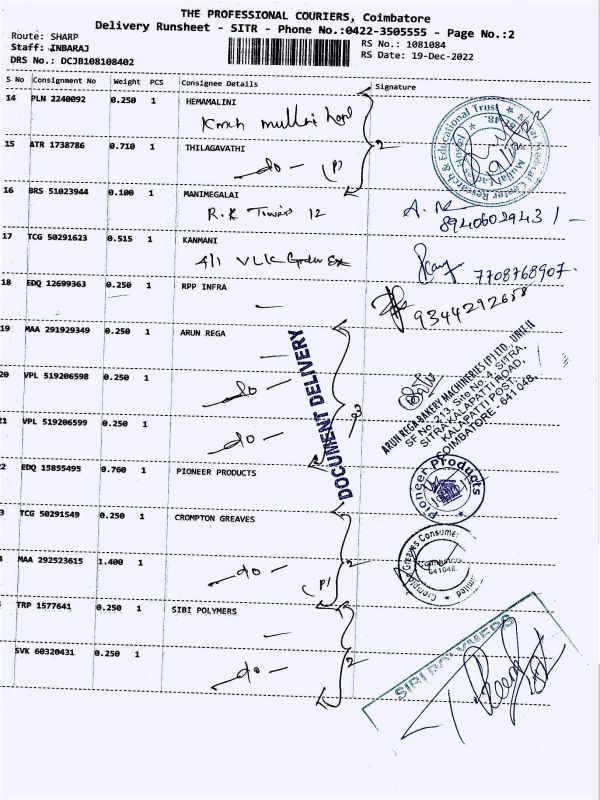 THE PROFESSIONAL COURIERS, Coimbatore
Delivery Runsheet - SITR - Phone No.:0422-3505555 - Page No.:2
Route: SHARP
Staff: INBARAJ
DRS No.: DCJB108108402
RS No.: 1081084
RS Date: 19-Dec-2022
S No Consignment No Weight PCS Consignee Details Signature
14 PLN 2240092 0.250 1 HEMAMALINI
Kmch mullai
15 ATR 1738786 0.710 1 THILAGAVATHI
-do- (P)
2
16 BRS 51023944 0.100 1 MANIMEGALAI
R.K Towers 12
8940602943/-
17 TCG 50291623 0.515 1 KANMANI
4/1 VLK
7708768907.
18 EDQ 12699363 0.250 1 RPP INFRA
9344292658
19 MAA 291929349 0.250 1 ARUN REGA
20 VPL 519206598 0.250 1
-do-
21 VPL 519206599 0.250 1
-do-
3
DOCUMENT DELIVERY
ARUN REGA BAKERY MACHINERIES (P) LTD., UNIT-II
SF No. 213, Site No. 4, SITRA,
SITRA KALAPATTI ROAD,
KALAPATTI POST,
COIMBATORE - 641 048.
2 EDQ 15855495 0.760 1 PIONEER PRODUCTS
Pioneer Products
3 TCG 50291549 0.250 1 CROMPTON GREAVES
MAA 292523615 1.400 1
-do- (P)
2
Crompton Greaves Consumer
Coimbatore
641048.
Limited
TRP 1577641 0.250 1 SIBI POLYMERS
SVK 60320431 0.250 1
-do-
2